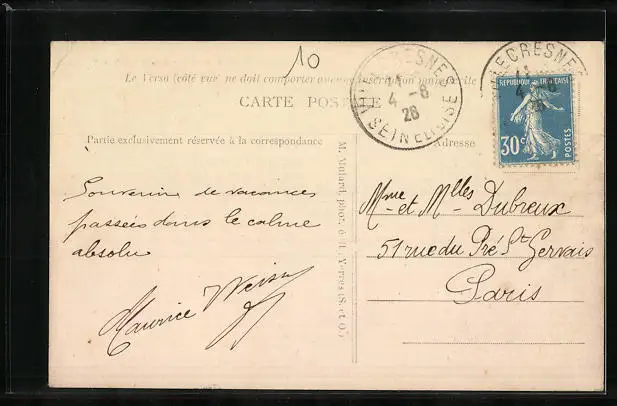 10
Le Verso (côté vue) ne doit comporter aucune inscription manuscrite
CARTE POSTALE
VILLECRESNES
4 -8
26
SEINE ET OISE
VILLECRESNES
4 -8
26
REPUBLIQUE FRANÇAISE
30c
POSTES
Partie exclusivement réservée à la correspondance
Adresse
M. Mulard, phot. à Yerres (S. et O.)
Souvenir de vacances
passées dans le calme
absolu
Maurice Weiss
Mme et Mlles Dubreux
51 rue du Pré St Gervais
Paris